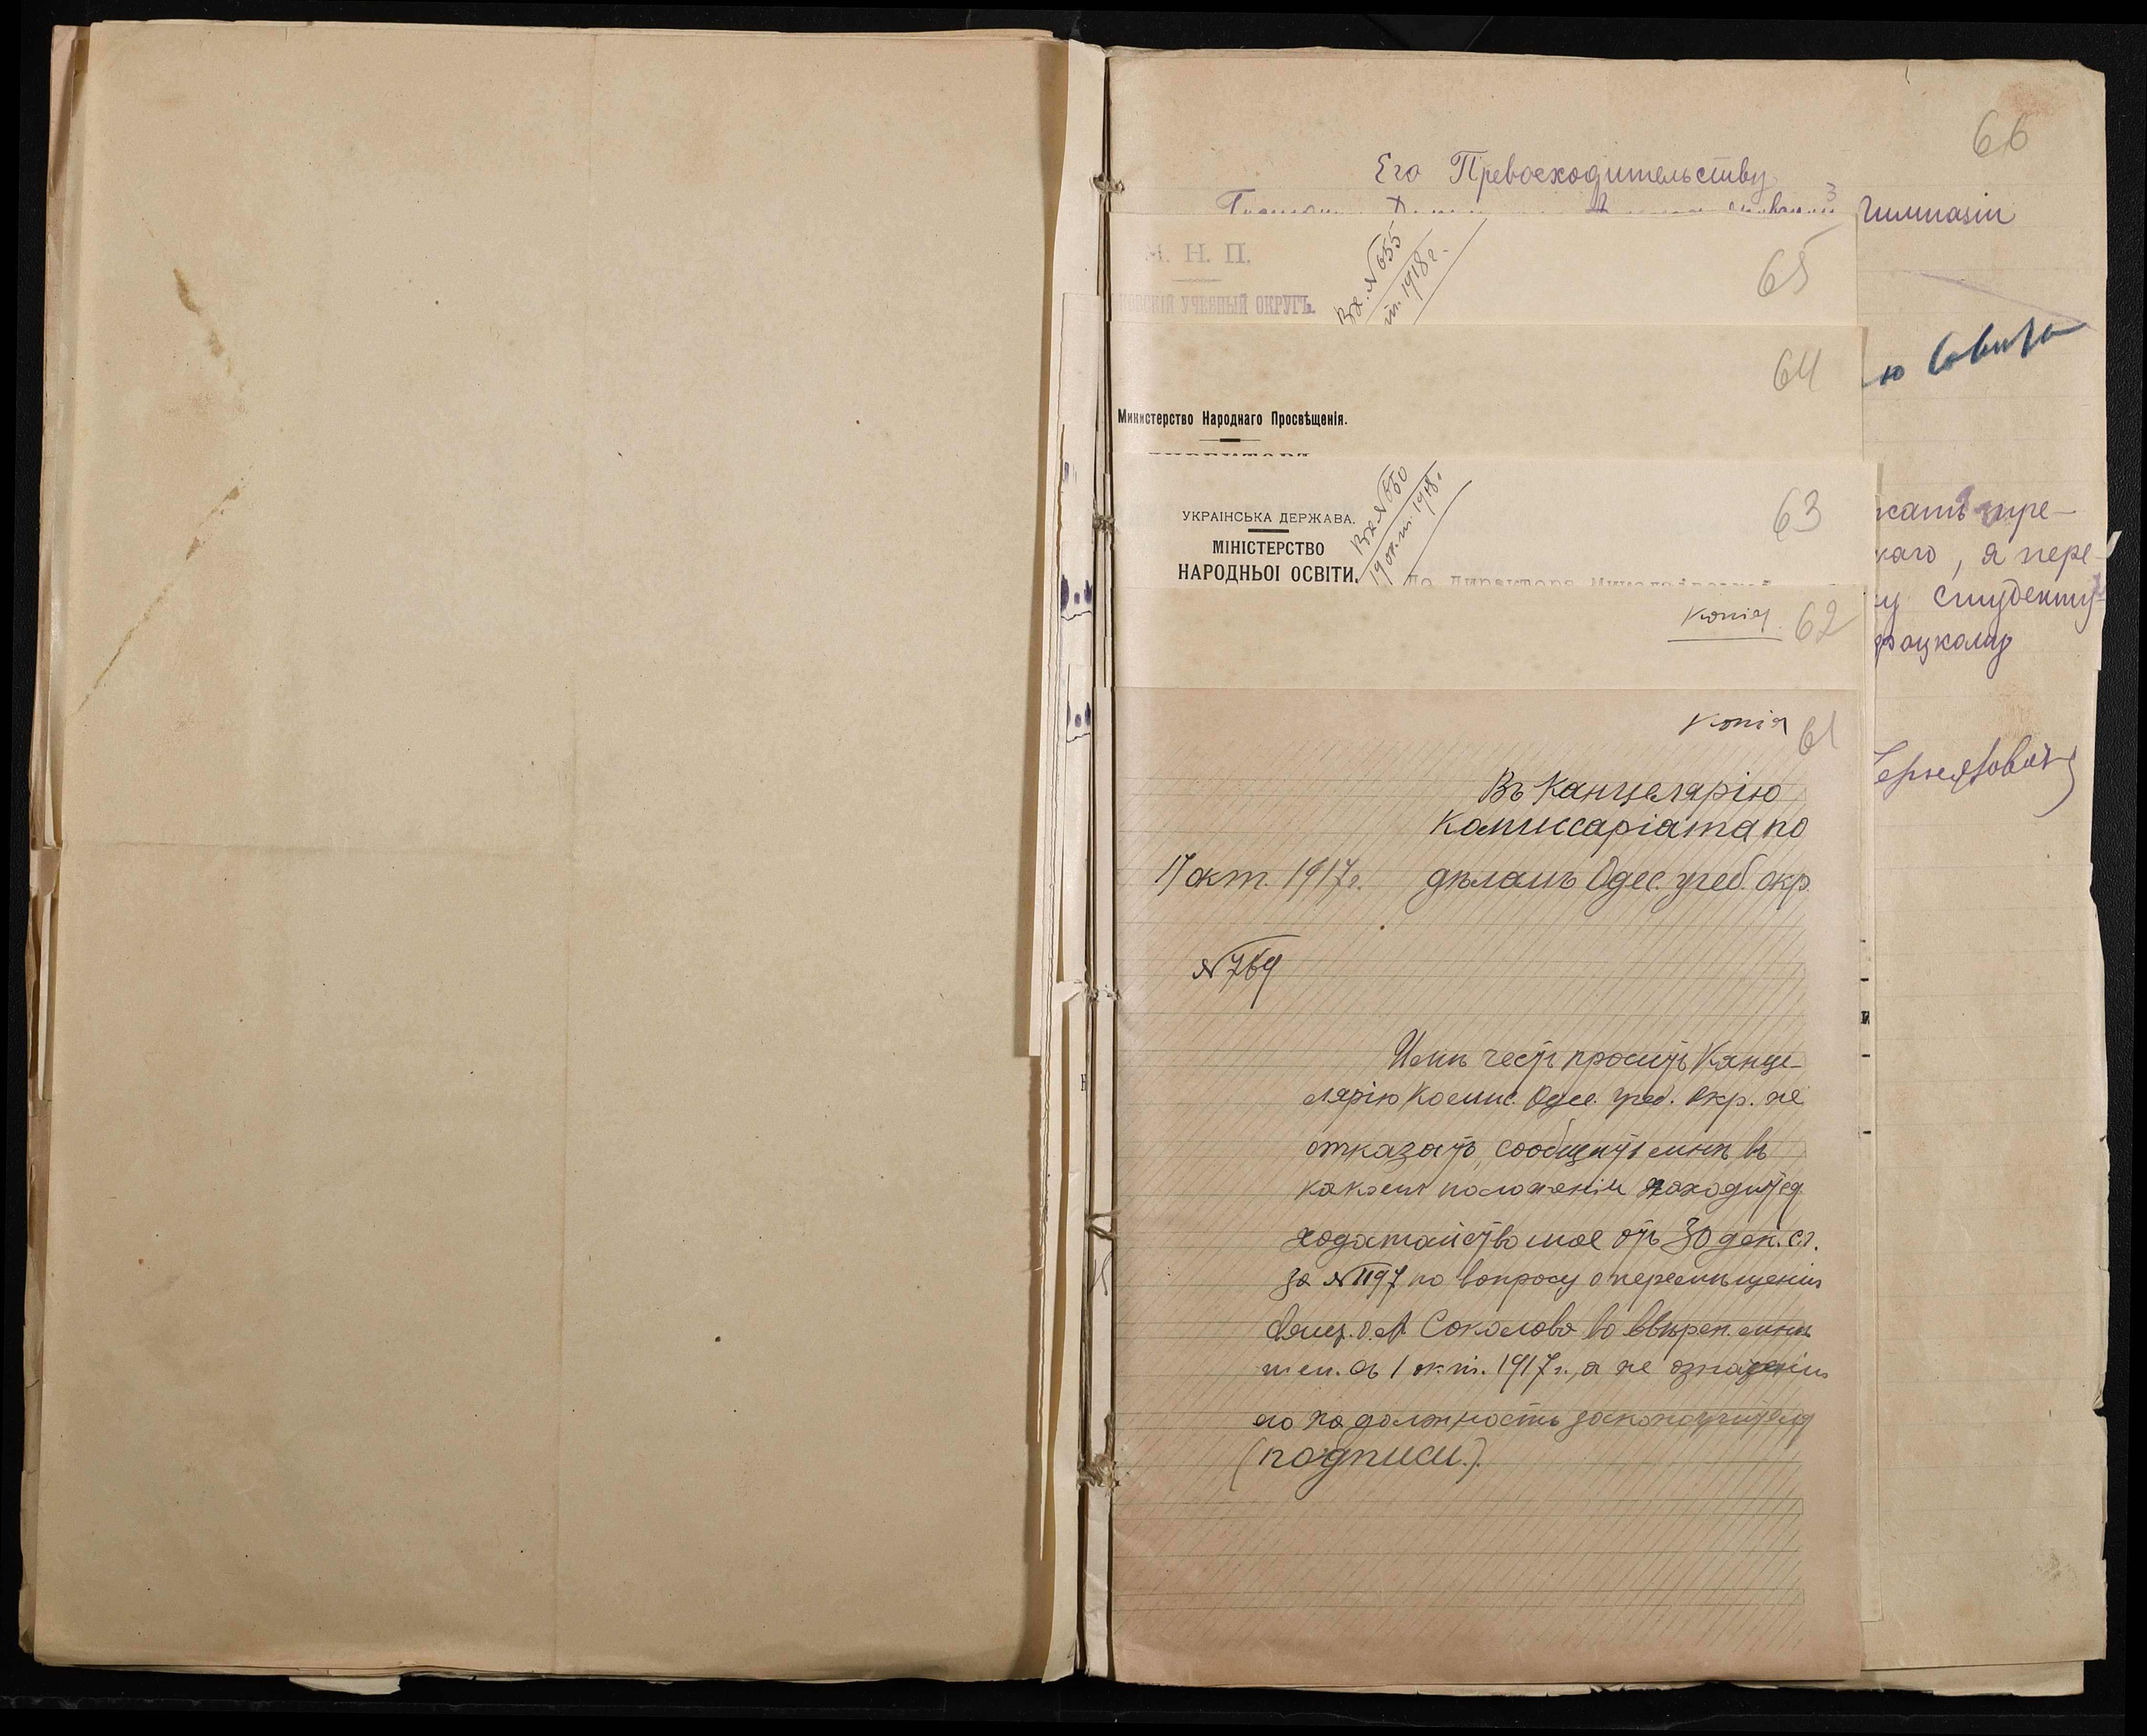 66
Его Превосходительству
Гимназіи
М. Н. П.
УЧЕБНЫЙ ОКРУГЪ.
Вх. № 655
1918 г.
65
64
Министерство Народнаго Просвѣщенія.
УКРАІНСЬКА ДЕРЖАВА.
МІНІСТЕРСТВО
НАРОДНЬОІ ОСВІТИ.
Вх. № 650
19 окт. 1918 г.
63
До Директора
Копія.
62
, я пере-
студенту
Копія
61
Въ Канцелярію
Комиссаріата по
17 окт. 1917 г. дѣламъ Одес. учеб. окр.
№ 769
Имѣю честь просить Канце-
лярію Комис. Одес. учеб. Окр. не
отказать, сообщить мнѣ въ
какомъ положеніи находится
ходатайство мое отъ 30 с.г.
за № 1197 по вопросу о перемѣщеніи
Свящ. о. А Соколова во ввѣрен. мнѣ
съ 1 окт. 1917 г., а не
его на должность законоучителя
(подписи).